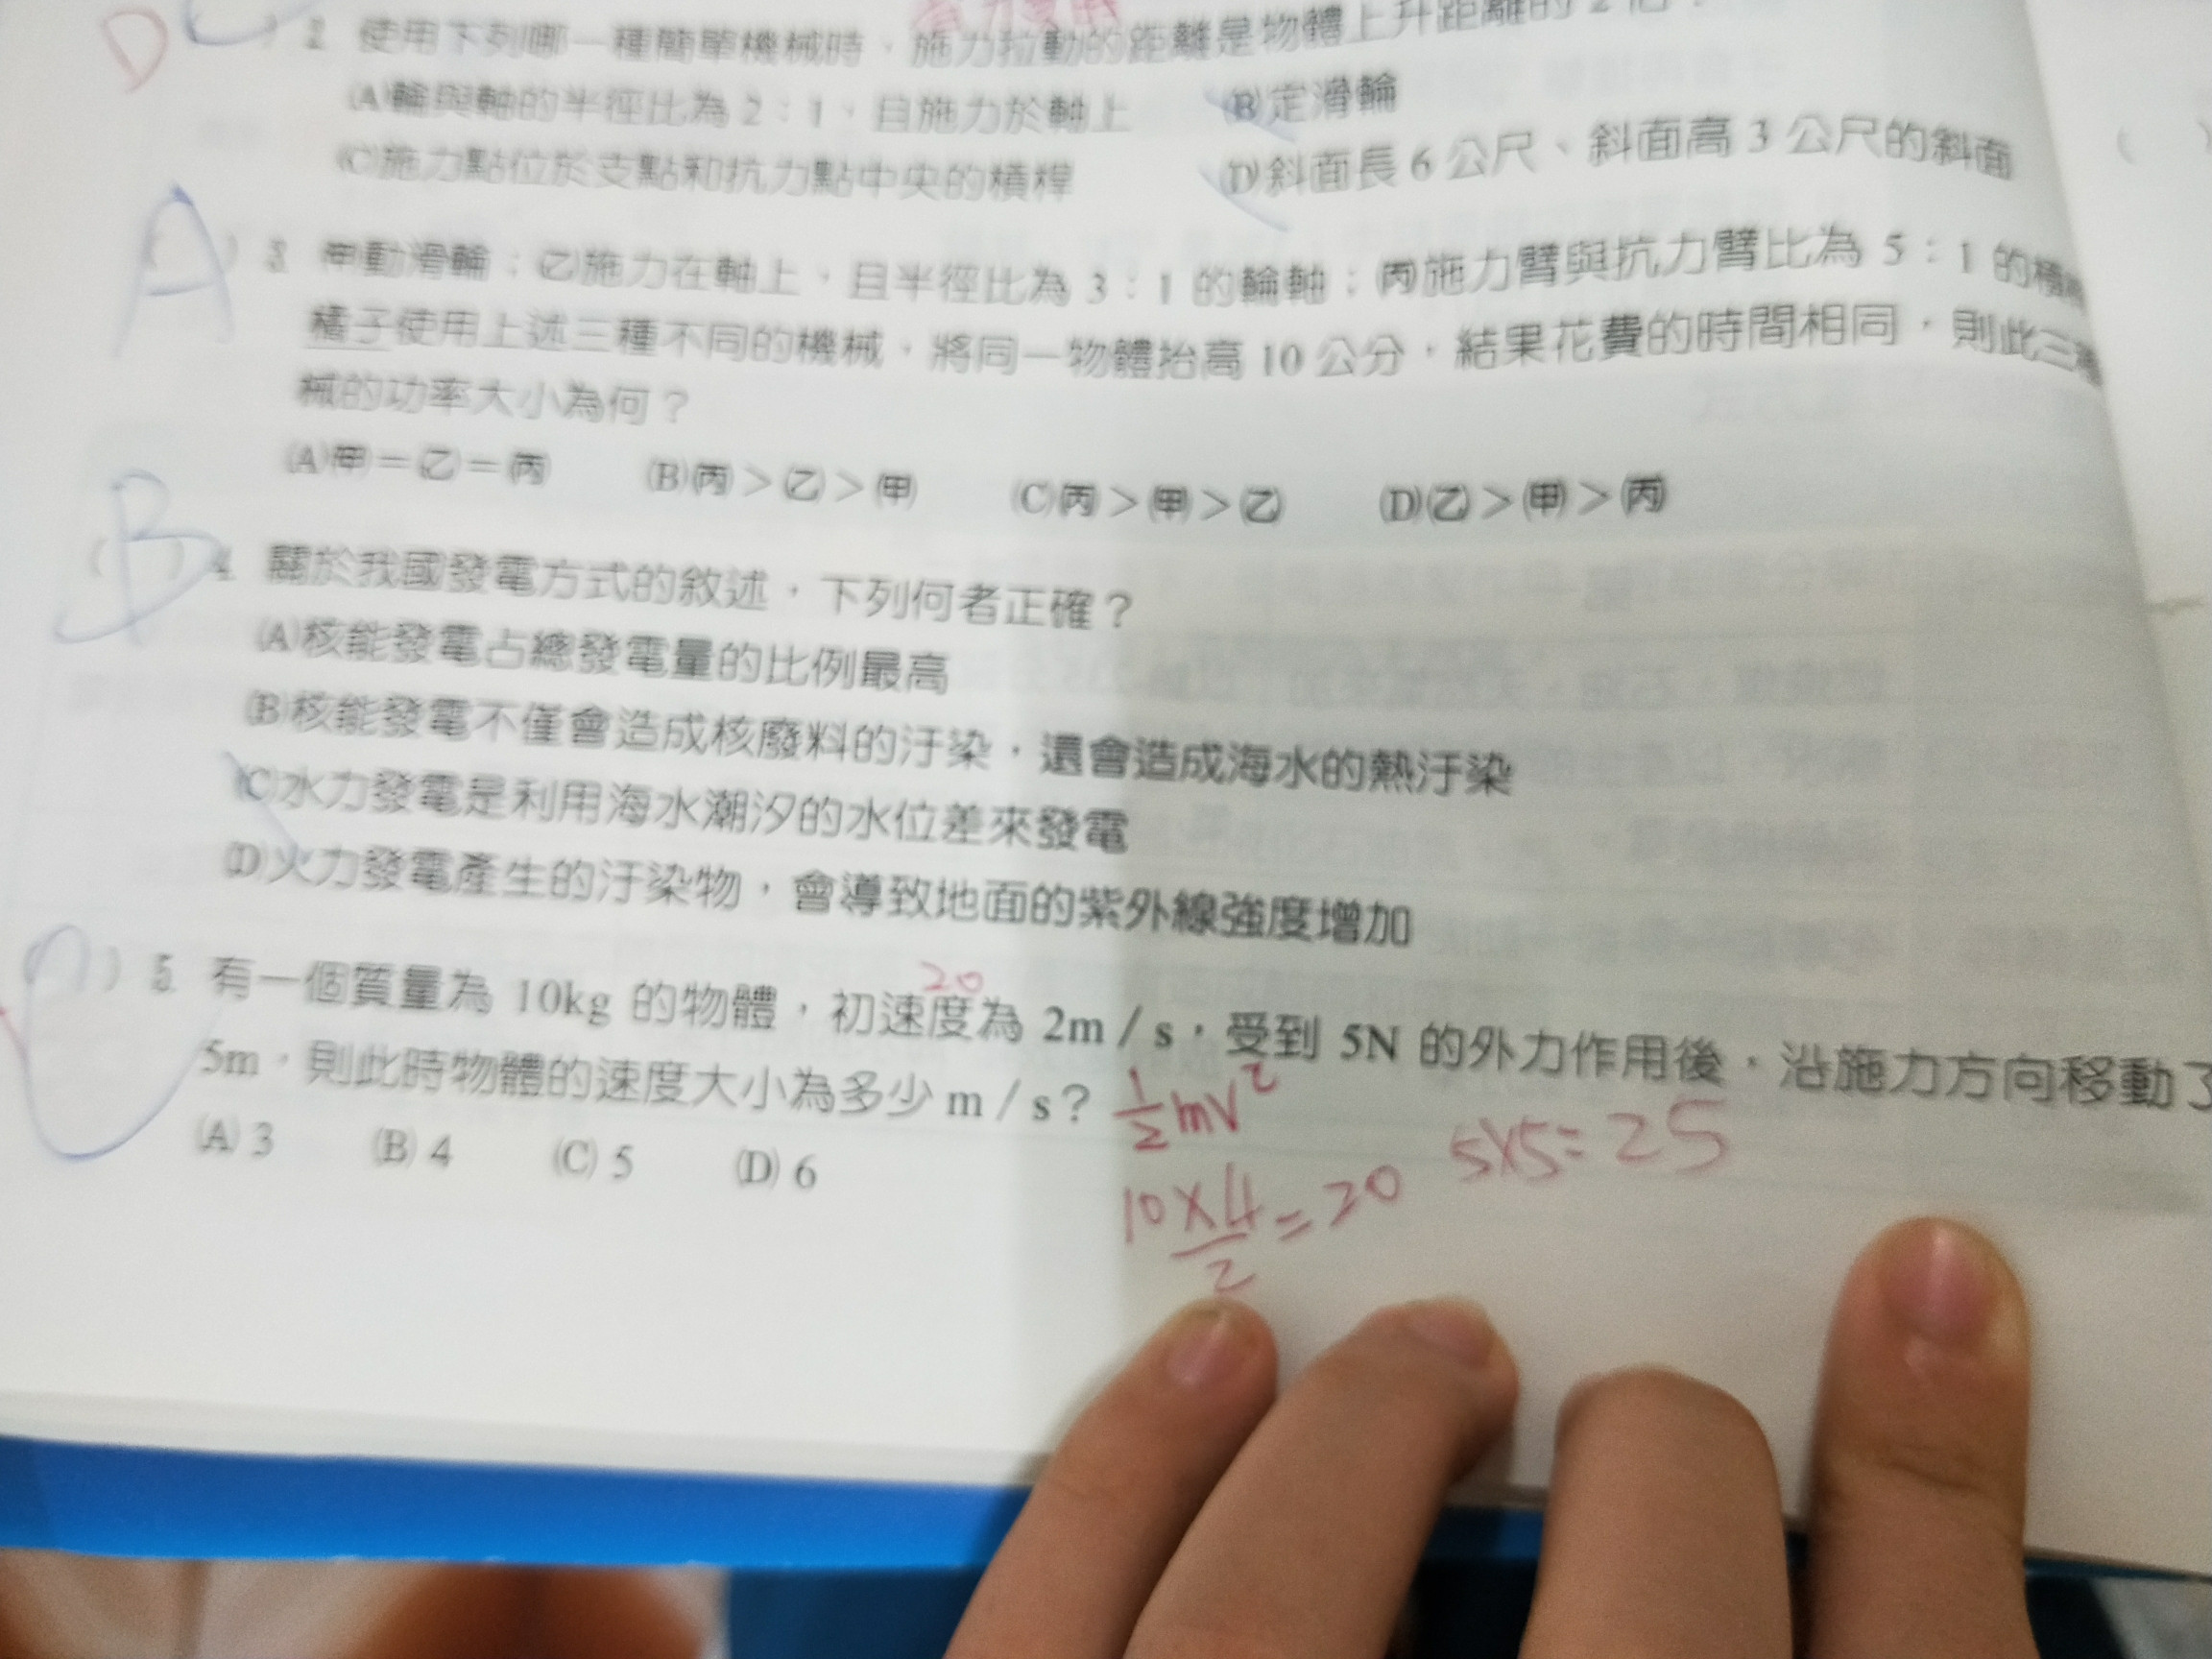 D
2. 使用下列哪一種簡單機械時，施力拉動的距離是物體上升距離的 2 倍？
(A)輪與軸的半徑比為 2：1，且施力於軸上 (B)定滑輪
(C)施力點位於支點和抗力點中央的槓桿 (D)斜面長 6 公尺、斜面高 3 公尺的斜面
A ) 3. (甲)動滑輪；(乙)施力在軸上，且半徑比為 3：1 的輪軸；(丙)施力臂與抗力臂比為 5：1 的槓
橘子使用上述三種不同的機械，將同一物體抬高 10 公分，結果花費的時間相同，則此三
械的功率大小為何？
(A)(甲)＝(乙)＝(丙) (B)(丙)＞(乙)＞(甲) (C)(丙)＞(甲)＞(乙) (D)(乙)＞(甲)＞(丙)
B ) 4. 關於我國發電方式的敘述，下列何者正確？
(A)核能發電占總發電量的比例最高
(B)核能發電不僅會造成核廢料的汙染，還會造成海水的熱汙染
(C)水力發電是利用海水潮汐的水位差來發電
(D)火力發電產生的汙染物，會導致地面的紫外線強度增加
20
C ) 5. 有一個質量為 10kg 的物體，初速度為 2m／s，受到 5N 的外力作用後，沿施力方向移動了
5m，則此時物體的速度大小為多少 m／s？ 1/2 mV²
(A) 3 (B) 4 (C) 5 (D) 6
10×4/2=20 5×5=25